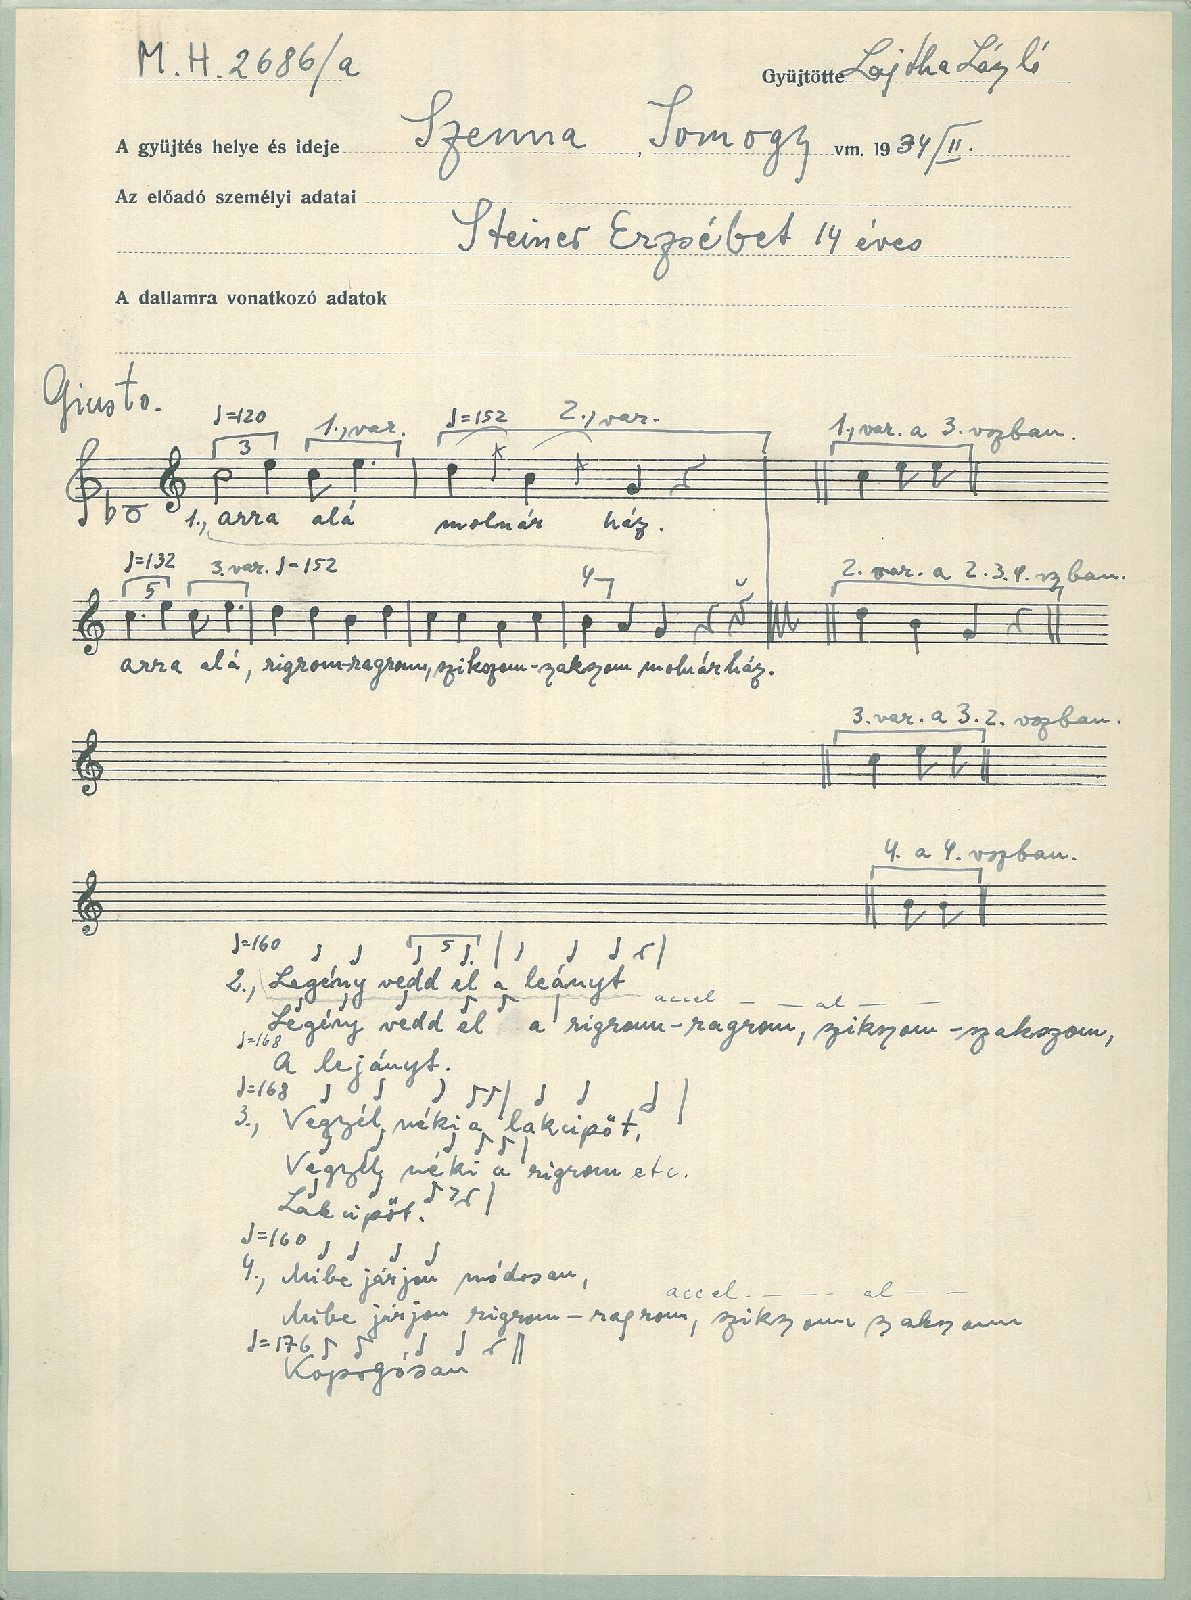 M. H. 2686/a
Gyüjtötte Lajtha László
A gyüjtés helye és ideje Szenna, Somogy vm. 1934/II.
Az előadó személyi adatai
Steiner Erzsébet 14 éves
A dallamra vonatkozó adatok
Giusto.
♩=120 1., var. ♩=152 2., var. 1., var. a 3. vszban.
3
1., arra alá molnár ház.
♩=132 3. var. ♩=152 4 2. var. a 2.3.4. vszban.
5
arra alá, rigrom-ragrom, szikszom-zakszom molnárház.
3. var. a 3.2. vszban.
4. a 4. vszban.
♩=160 5
2., Legény vedd el a leányt
accel — — al — —
Legény vedd el a rigrom-ragrom, zikszom-szakszom,
♩=168
A lejányt.
♩=168
3., Vegyél néki a lakcipőt,
Vegyél néki a rigrom etc.
Lakcipőt.
♩=160
4., Mibe járjon módosan,
accel. — — — al — —
Mibe járjon rigrom-ragrom, szikszom zakszom
♩=176
Kopogósan